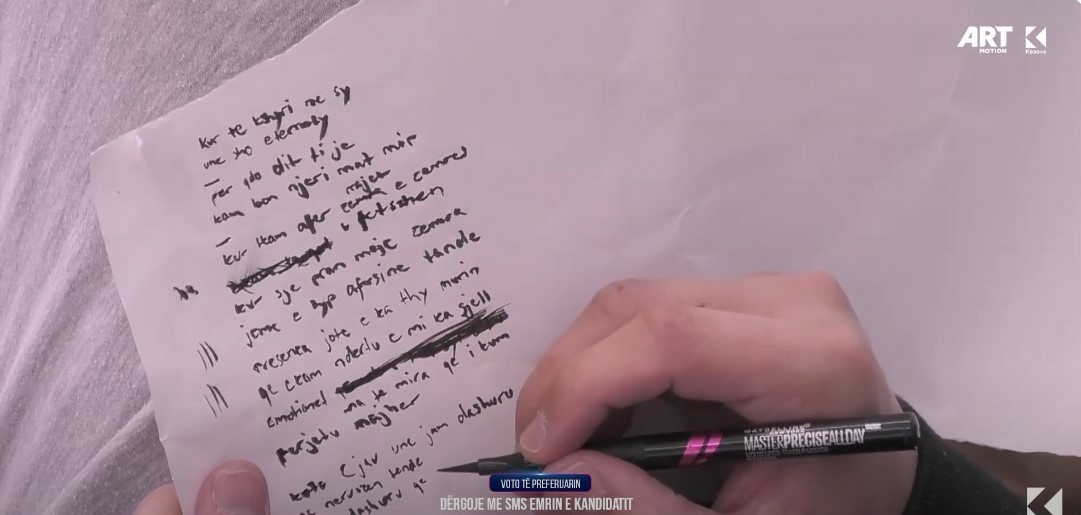 ART
MOTION
Kosova
kur te kthyri ne sy
une sho eternity
per qdo dit ti je
kam bon njeri mat mir
majet
kur kam afer e camres
fetohen
kur sje pran meje zemra
jeme e hyp afersine tande
presenca jote e ka thy murin
qe ckam ndertu e mi ka sjell
emotionet
ma te mira qe i kum
perjetu najher
keto
Ejav une jam dashuru
ne tende
dashuru qe
MAYBELLINE
MASTERPRECISEALLDAY
VOTO TË PREFERUARIN
DËRGOJE ME SMS EMRIN E KANDIDATIT